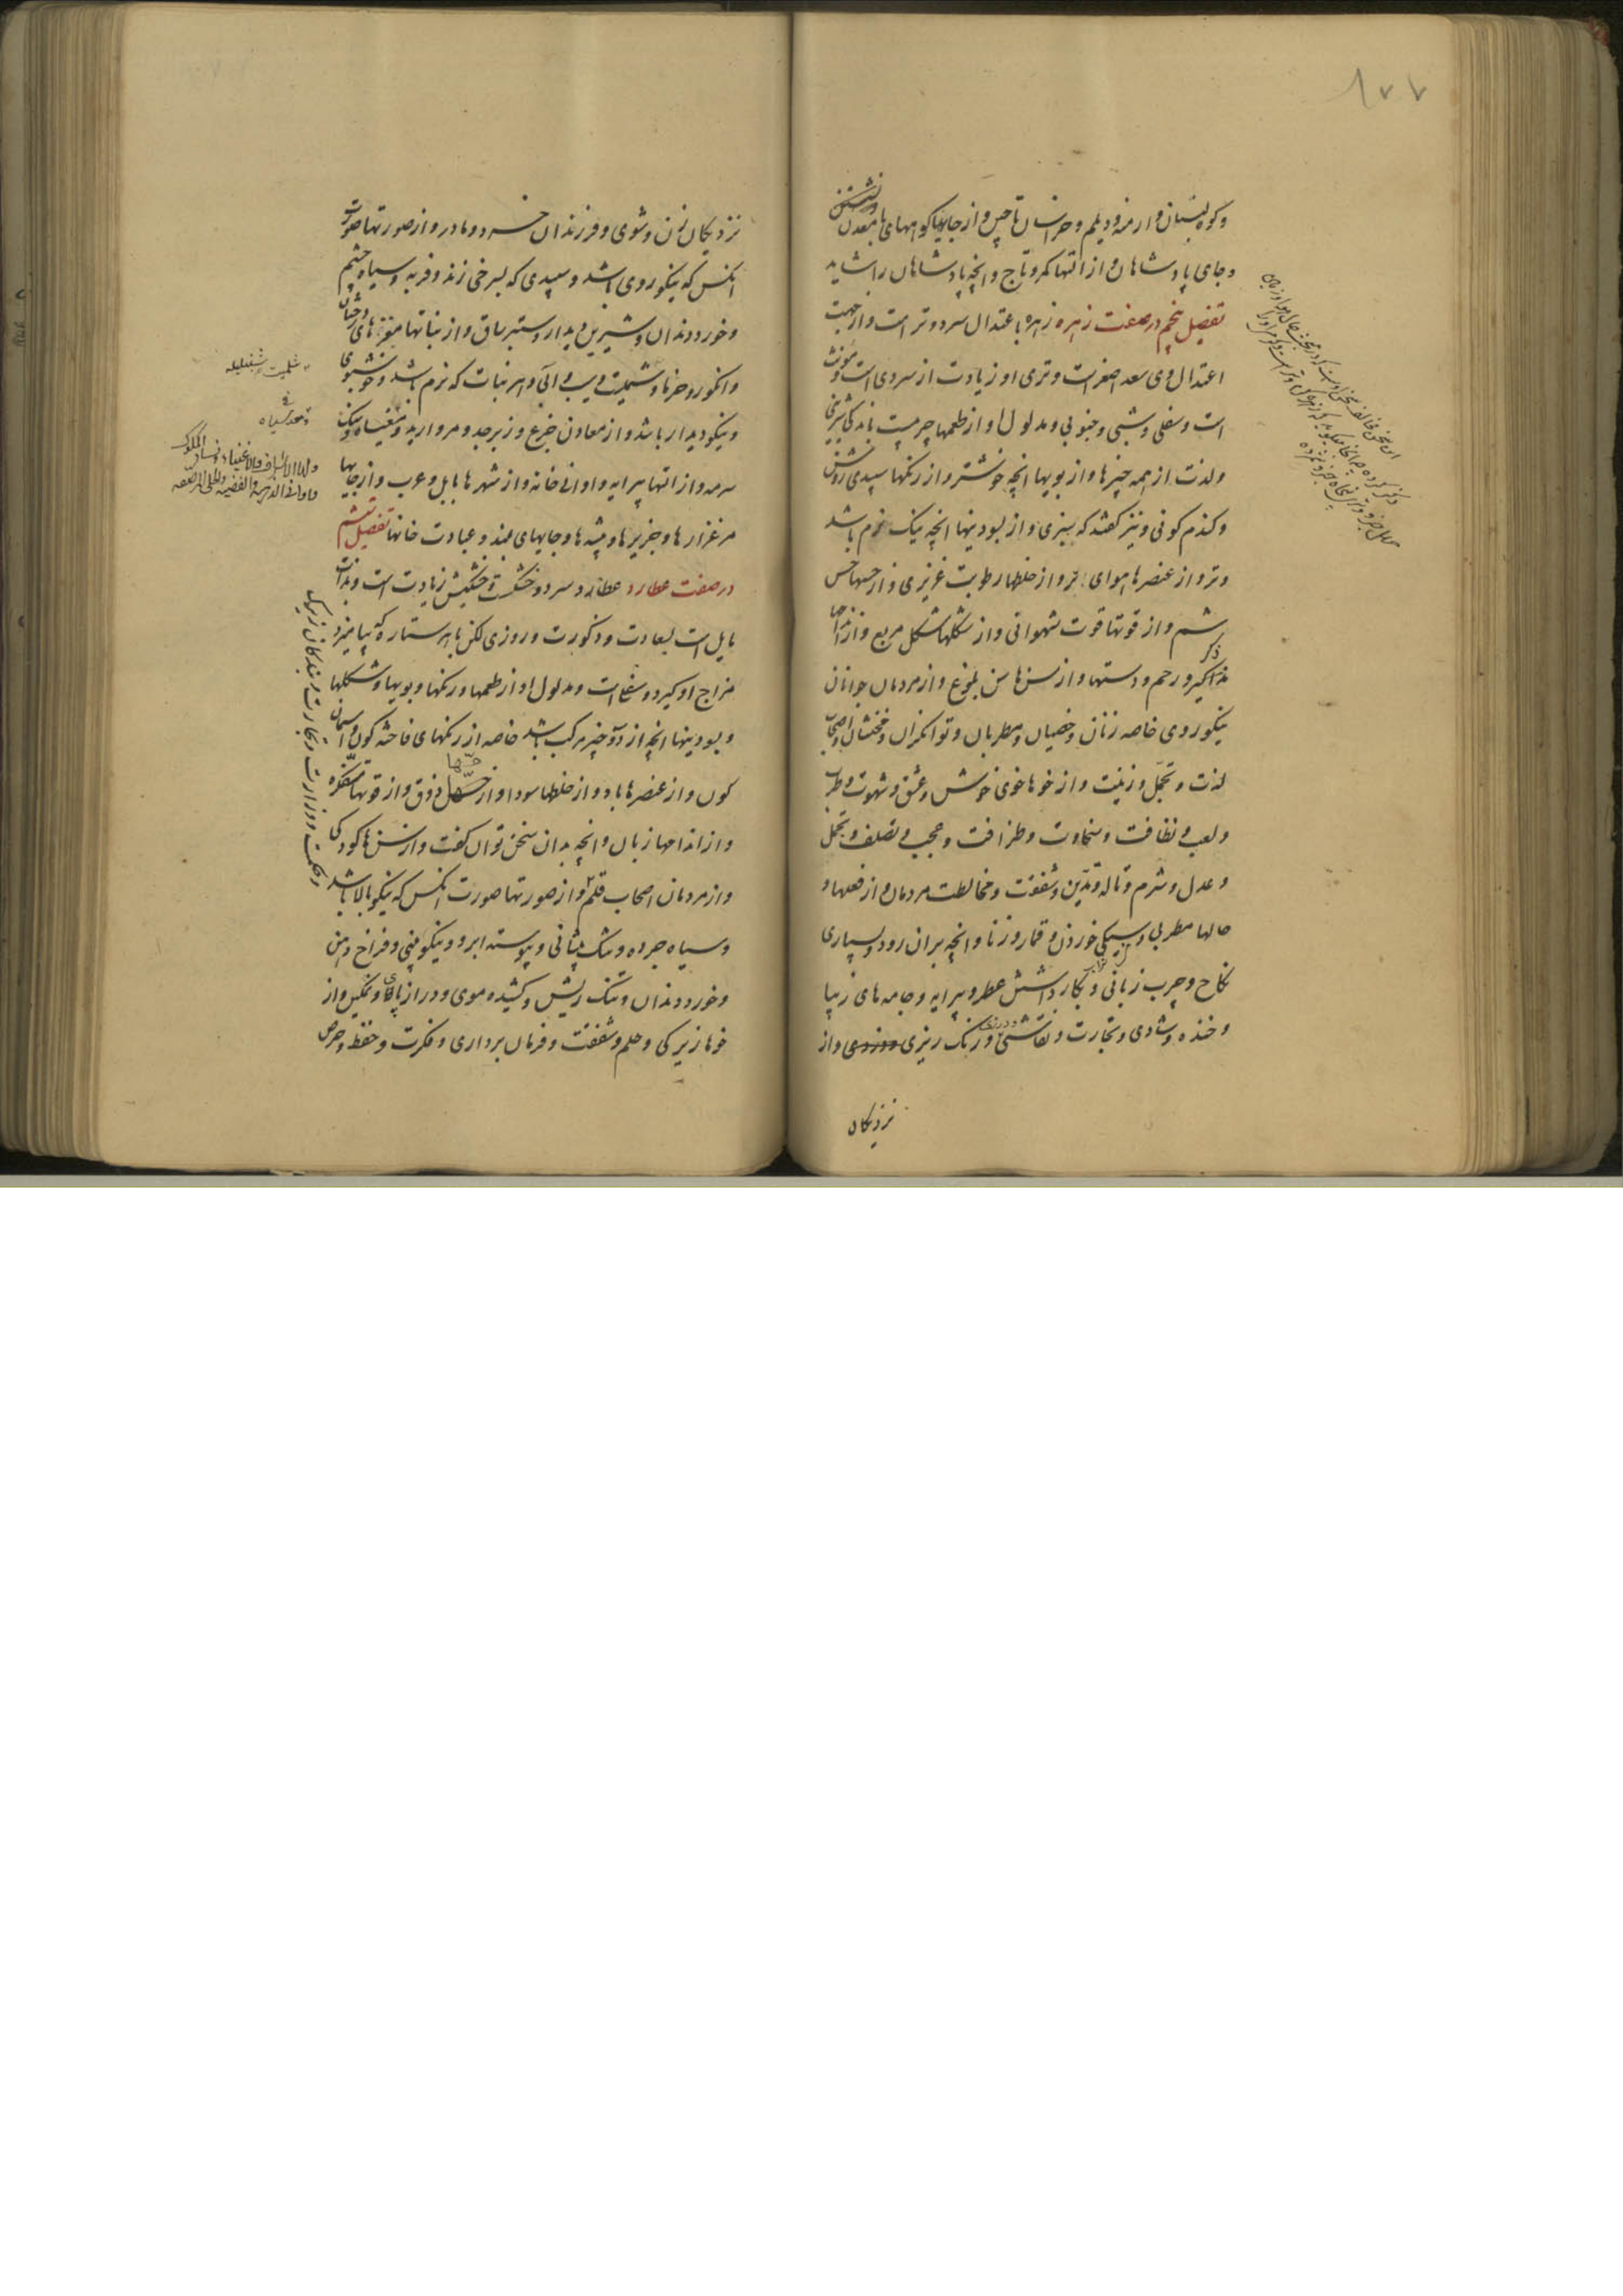 ۱۷۷
و کوهستان و ارمنه و دیلم و خراسان تا چین و از جایها کوههای با معدن
و جای پادشاهان و از التها کمر و تاج و انچه پادشاهان را شاید
تفصیل پنجم در صفت زهره زهره با عتدال سرد و تر است و از جهت
اعتدال وی سعد اصغر است و تری او زیادت از سردی است و مونث
است و سفلی و شبی و جنوبی و مدلول او از طعمها چرمست باندکی شیرینی
و لذت از همه چیزها و از بویها انچه خوشتر و از رنکها سپیدی روشن
و کندم کونی و نیز کفتند که سبزی و از بسودنیها انچه نیک نرم باشد
و تر و از عنصرها هوای تر و از خلطها رطوبت غریزی و از حسها حس
شم و از قوتها قوت شهوانی و از شکلها شکل مربع و از اندامها
مذاکیر و رحم و دستها و از سن ها سن بلوغ و از مردمان جوانان
نیکوروی خاصه زنان و خصیان و مطربان و توانکران و مخنثان و اصحاب
لذت و تجمل و زینت و از خوها خوی خوش و عشق و شهوت و طرب
و لعب و نظافت و سخاوت و ظرافت و عجب و تصلف و تجمل
و عدل و شرم و تاله و تدین و شفقت و مخالطت مردمان و از فعلها و
حالها مطربی و سیکی خوردن و قمار و زنا و انچه بران رود و بسیاری
نکاح و چرب زبانی و بکار داشتن عطر و پیرایه و جامه های زیبا
و خنده و شادی و تجارت و نقاشی و رنک ریزی و درزی و از
نزدیکان
نزدیکان زن و شوی و فرزندان خرد و مادر و از صورتها صورت
انکس که نیکوروی باشد و سپیدی که بسرخی زند و فربه و سیاه چشم
و خورد دندان و شیرین دیدار و ستبر ساق و از نباتها میوه های درختان
و انکور و خرما و شملیت و سیب و آبی و هر نبات که نرم باشد و خوشبوی
و نیکو دیدار باشد و از معادن جزع و زبرجد و مروارید و مغنیسا و نیک
سرمه و از التها پیرایه و اوانی خانه و از شهرها بابل و عرب و از جایها
مرغزارها و جزیرها و بیشه ها و جایهای بلند و عبادت خانها تفصیل ششم
در صفت عطارد عطارد سرد و خشکست و خشکیش زیادت است و بذات
مایل است بسعادت و ذکورت و روزی لکن با هر ستاره که بیامیزد
مزاج او کیرد و سفلی است و مدلول او از طعمها و رنکها و بویها و شکلها
و بسودنیها انچه از دو چیز مرکب باشد خاصه از رنکهای فاخته کون و اسمان
کون و از عنصرها باد و از خلطها سودا و از حسها ذوق و از قوتها متفکره
و از اندامها زبان و انچه بدان سخن توان کفت و از سن ها کودکی
و از مردمان اصحاب قلم و از صورتها صورت انکس که نیکو بالا باشد
و سیاه چرده و تنک پیشانی و پیوسته ابرو و نیکو بینی و فراخ دهن
و خورد دندان و تنک ریش و کشیده موی و دراز پای و نمکین و از
خوها زیرکی و حلم و شفقت و فرمان برداری و فکرت و حفظ و حرص
شملیت شنبلیله
و حکمت و وزارت و تجارت و بندکان زیرک